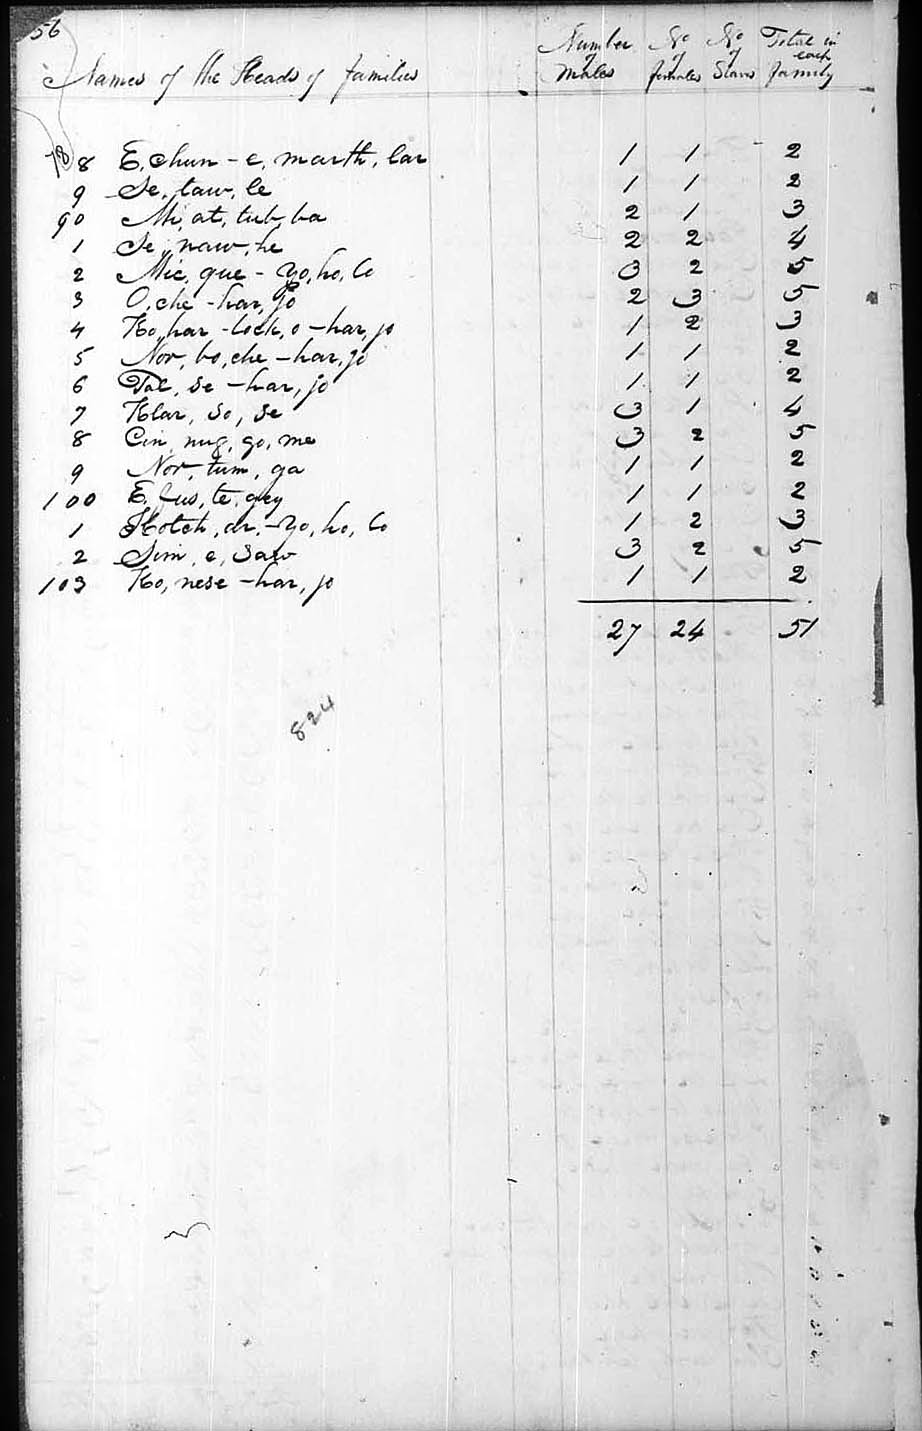 56
Names of the Heads of families Number of males No of females No of Slaves Total in each family
88 E, chun - e, marth, lar 1 1 2
9 Se, taw, le 1 1 2
90 Mi, at, tub, ba 2 1 3
1 Se, naw, he 2 2 4
2 Mic, que - Yo, ho, lo 3 2 5
3 O, che - har, jo 2 3 5
4 Ko, har - lock, o - har, jo 1 2 3
5 Nor, bo, che - har, jo 1 1 2
6 Tal, se - har, jo 1 1 2
7 Klar, so, se 3 1 4
8 Cin, nug, go, me 3 2 5
9 Nor, tum, ga 1 1 2
100 E, fus, te, gey 1 1 2
1 Hotch, ar, - Yo, ho, lo 1 2 3
2 Sim, e, saw 3 2 5
103 Ko, nese - har, jo 1 1 2
27 24 51
824